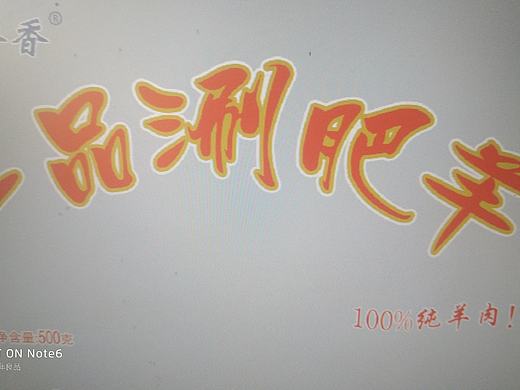 香®
品涮肥羊
100%纯羊肉!
净含量:500克
T ON Note6
年良品